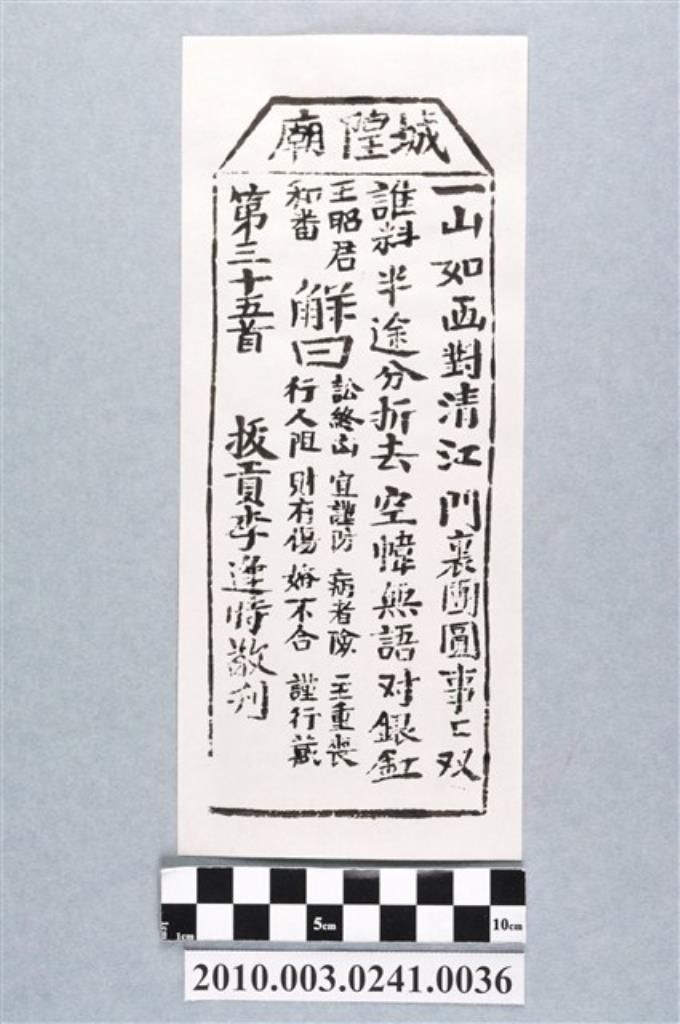 城隍廟
一山如画對清江門裏團圓事〻双
誰料半途分折去空幃無語对銀缸
王昭君
和番
解曰
訟終凶 宜謹防 病者險 主重喪
行人阻 財有傷 婚不合 謹行藏
第三十五首 拔貢李逢時敬刊
1cm 5cm 10cm
2010.003.0241.0036